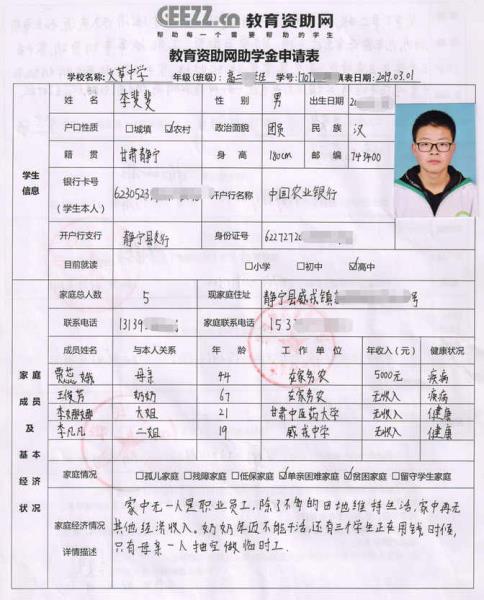 CEEZZ.cn 教育资助网
帮助每一个需要帮助的学生
教育资助网助学金申请表
学校名称: 文萃中学 年级(班级): 高二 班 学号: 701 填表日期: 2019.03.01
姓 名 李斐斐 性 别 男 出生日期 20
户口性质 □城镇 ☑农村 政治面貌 团员 民 族 汉
学生信息
籍 贯 甘肃静宁 身 高 180cm 邮 编 743400
银行卡号(学生本人) 6230523 开户行名称 中国农业银行
开户行支行 静宁县支行 身份证号 6227272
目前就读 □小学 □初中 ☑高中
家庭总人数 5 现家庭住址 静宁县威戎镇 号
联系电话 13139 家庭联系电话 153
成员姓名 与本人关系 年 龄 工 作 单 位 年收入(元) 健康状况
家庭成员及基本经济状况
母亲 44 在家务农 5000元 疾病
奶奶 67 在家务农 无收入 疾病
大姐 21 甘肃中医药大学 无收入 健康
李凡凡 二姐 19 威戎中学 无收入 健康
家庭情况 □孤儿家庭 □残障家庭 □低保家庭 ☑单亲困难家庭 ☑贫困家庭 □留守学生家庭
家庭经济情况详情描述
家中无一人是职业员工,除了不多的田地维持生活,家中再无
其他经济收入。奶奶年迈不能干活,还有三个学生正在用钱时候,
只有母亲一人抽空做临时工.